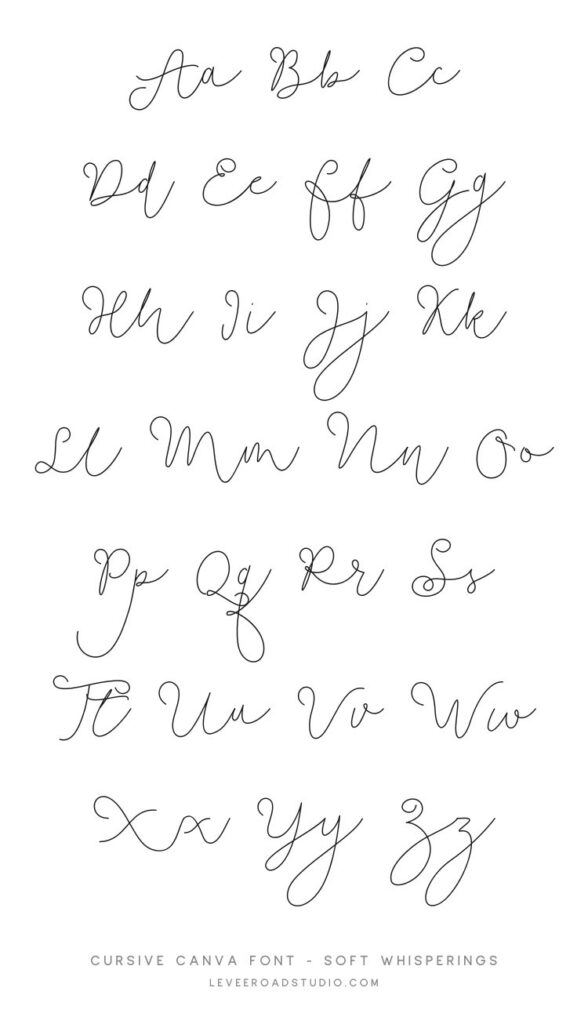 Aa Bb Cc
Dd Ee Ff Gg
Hh Ii Jj Kk
Ll Mm Nn Oo
Pp Qq Rr Ss
Tt Uu Vv Ww
Xx Yy Zz
CURSIVE CANVA FONT - SOFT WHISPERINGS
LEVEEROADSTUDIO.COM